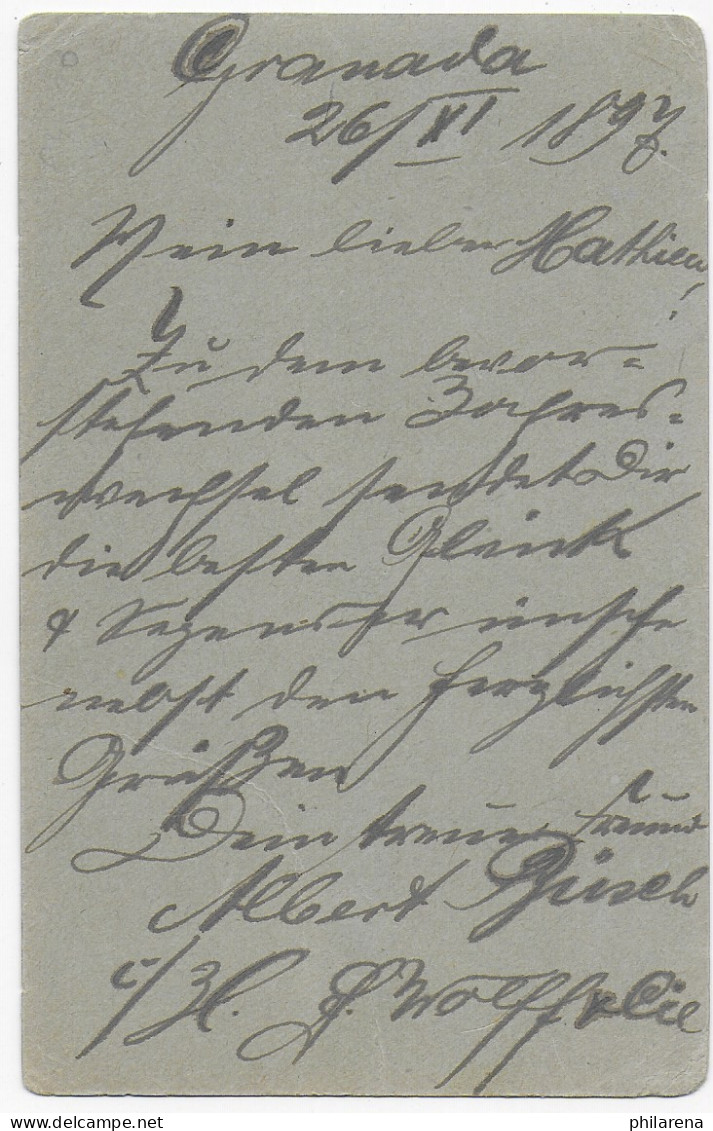 Granada
26/XI 1897.
Mein lieber Mathieu!
Zu dem bevor=
stehenden Jahres=
wechsel sendet Dir
die besten Glück
& Segenswünsche
nebst den herzlichsten
Grüßen
Dein treuer Freund
Albert Büsch
c/ H. F. Wolff & Cie
www.delcampe.net
philarena